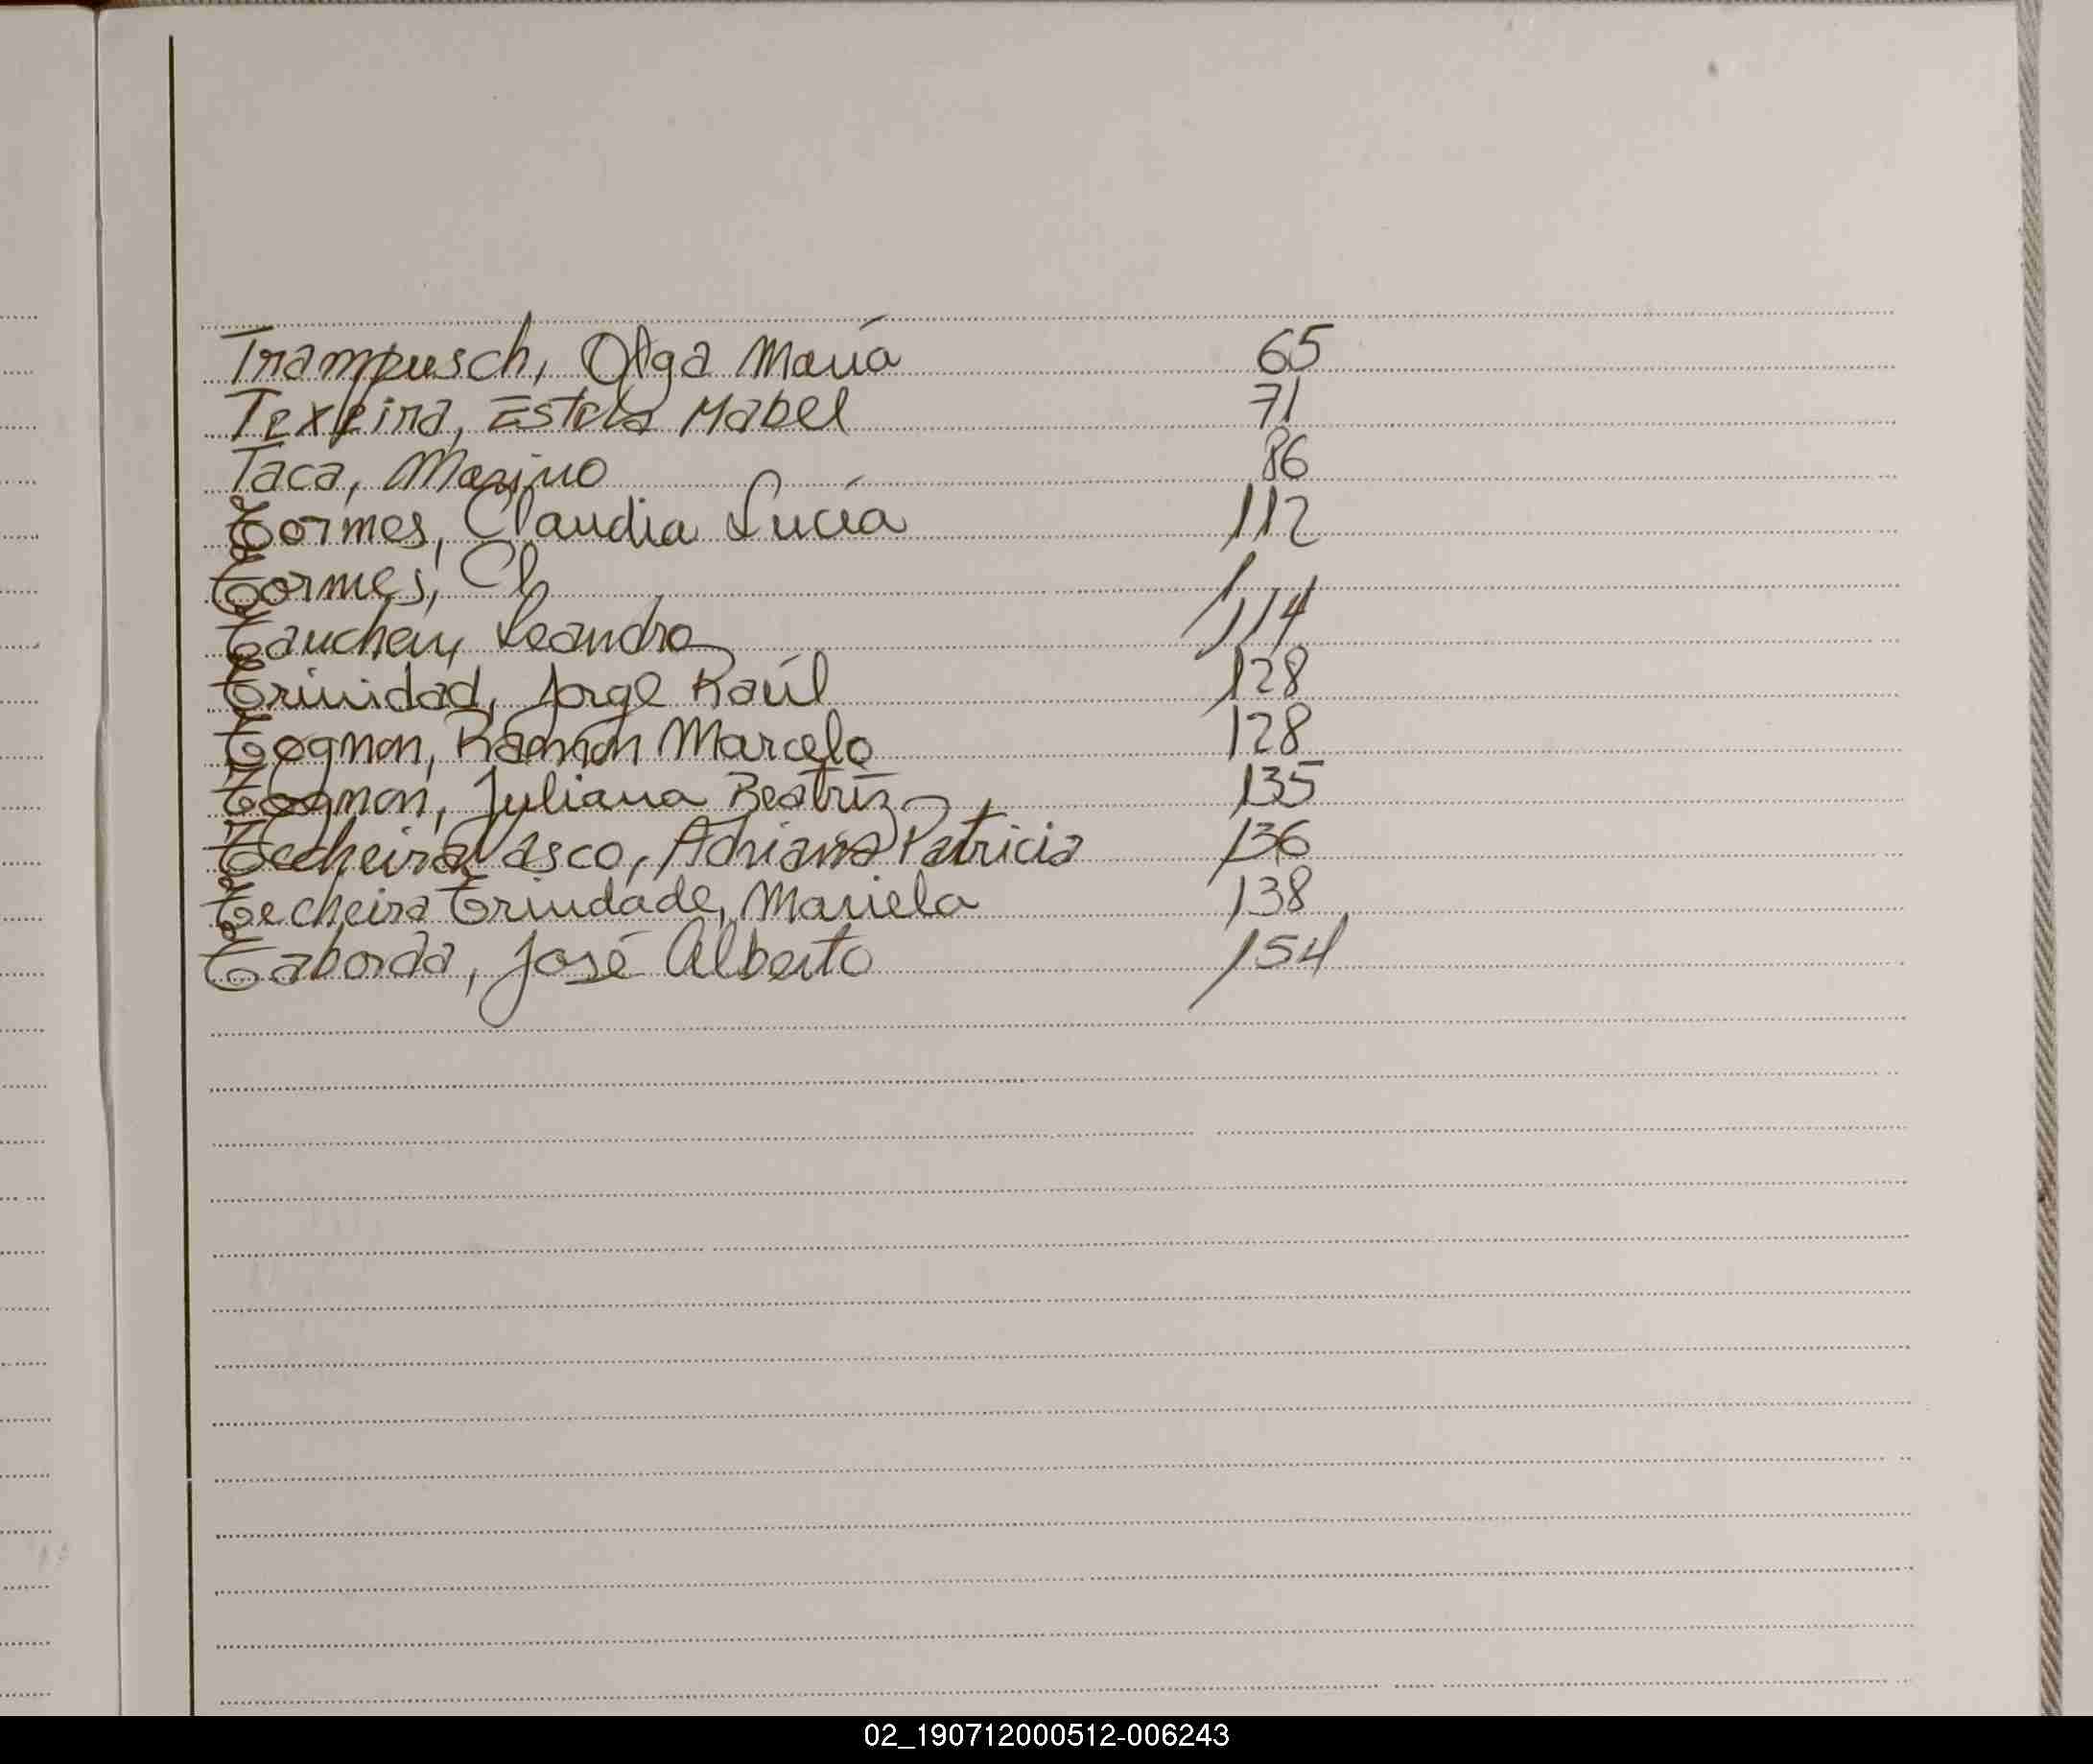 Trampusch, Olga María 65
Texeira, Estela Mabel 71
Taca, Marino 86
Tormes, Claudia Lucía 112
Tormes, Cl
Tauchen, Leandro 114
Trinidad, Jorge Raúl 128
Tognon, Ramón Marcelo 128
Tognon, Juliana Beatriz 135
Techeira Vasco, Adriana Patricia 136
Techeira Trindade, Mariela 138
Taborda, José Alberto 154
02_190712000512-006243